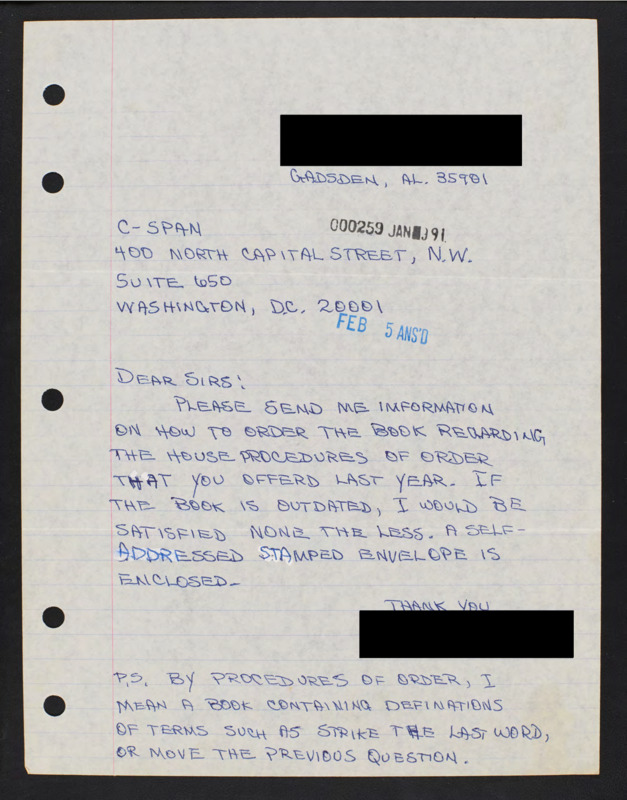 GADSDEN, AL. 35901
C-SPAN
000259 JAN 91
400 NORTH CAPITAL STREET, N.W.
SUITE 650
WASHINGTON, D.C. 20001
FEB 5 ANS'D
DEAR SIRS:
PLEASE SEND ME IMFORMATION
ON HOW TO ORDER THE BOOK REGARDING
THE HOUSE PROCEDURES OF ORDER
THAT YOU OFFERD LAST YEAR. IF
THE BOOK IS OUTDATED, I WOULD BE
SATISFIED NONE THE LESS. A SELF-
ADDRESSED STAMPED ENVELOPE IS
ENCLOSED.
THANK YOU
P.S. BY PROCEDURES OF ORDER, I
MEAN A BOOK CONTAINING DEFINATIONS
OF TERMS SUCH AS STRIKE THE LAST WORD,
OR MOVE THE PREVIOUS QUESTION.